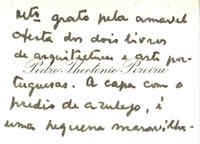 mto grato pela amavel
oferta dos dois livros
de arquitectura e arte por-
Pedro Theotonio Pereira
tuguesas. A capa com o
predio de azulejo, é
uma pequena maravilha.